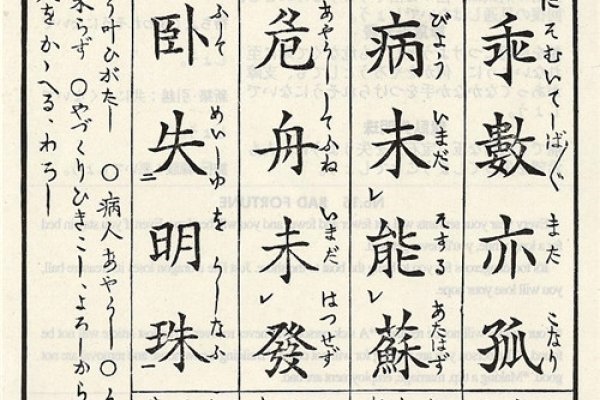 にそむいてしば〴〵 また こなり
乖數亦孤
びよう いまだ そする あたはず
病未レ能レ蘇
あやうくしてふね いまだ はつせず
危舟未レ發
ふして めいしゆを うしなふ
臥失二明珠一
叶ひがたし ○病人あやうし ○
来らず ○やづくりひきこしよろしから
をかゝへる、わろし